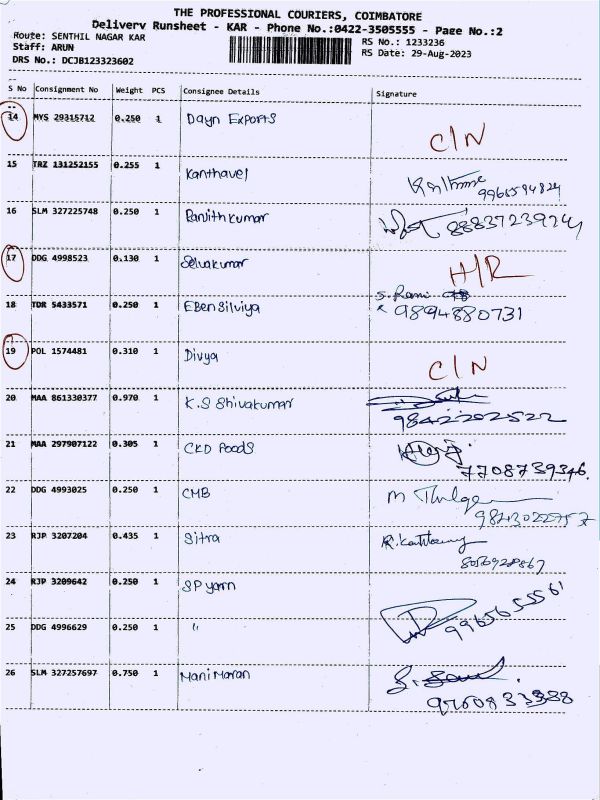 THE PROFESSIONAL COURIERS, COIMBATORE
Delivery Runsheet - KAR - Phone No.:0422-3505555 - Page No.:2
Route: SENTHIL NAGAR KAR RS No.: 1233236
Staff: ARUN RS Date: 29-Aug-2023
DRS No.: DCJB123323602
S No Consignment No Weight PCS Consignee Details Signature
14 MYS 29315712 0.250 1 Dayn Exports C/N
15 TRZ 131252155 0.255 1 Kanthavel
16 SLM 327225748 0.250 1 Ranjithkumar
17 DDG 4998523 0.130 1 Selvakumar H/R
18 TDR 5433571 0.250 1 Eben Silviya S. Rami
9894880731
19 POL 1574481 0.310 1 Divya C/N
20 MAA 861330377 0.970 1 K.S Shivakumar
9842202522
21 MAA 297907122 0.305 1 CKD Foods
7708739346.
22 DDG 4993025 0.250 1 CMB
23 RJP 3207204 0.435 1 Sitra
24 RJP 3209642 0.250 1 SP yarn
25 DDG 4996629 0.250 1 "
9965655561
26 SLM 327257697 0.750 1 Manimaran